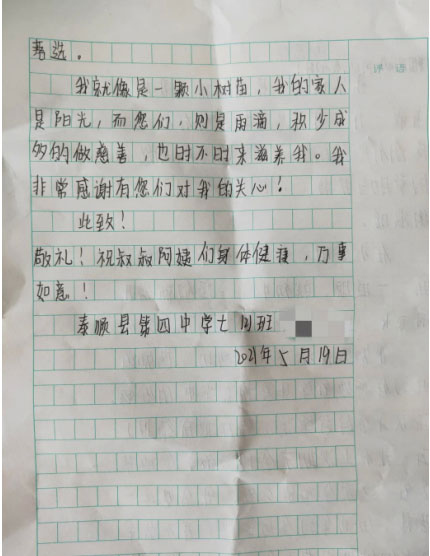 选。
我就像是一颗小树苗，我的家人
是阳光，而您们，则是雨滴，积少成
的的做慈善，也时不时来滋养我。我
非常感谢有您们对我的关心！
此致！
敬礼！祝叔叔阿姨们身体健康，万事
如意！
泰顺县第四中学七 班
2021年5月19日